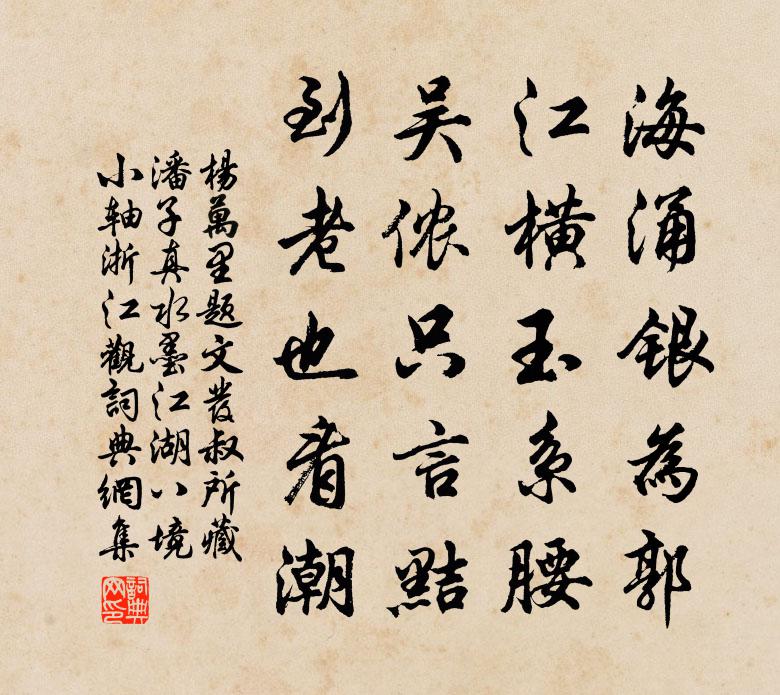 海涌銀為郭
江橫玉系腰
吴侬只言黠
到老也看潮
楊萬里题文發叔所藏
潘子真水墨江湖八境
小轴浙江觀詞典網集
詞典
网印